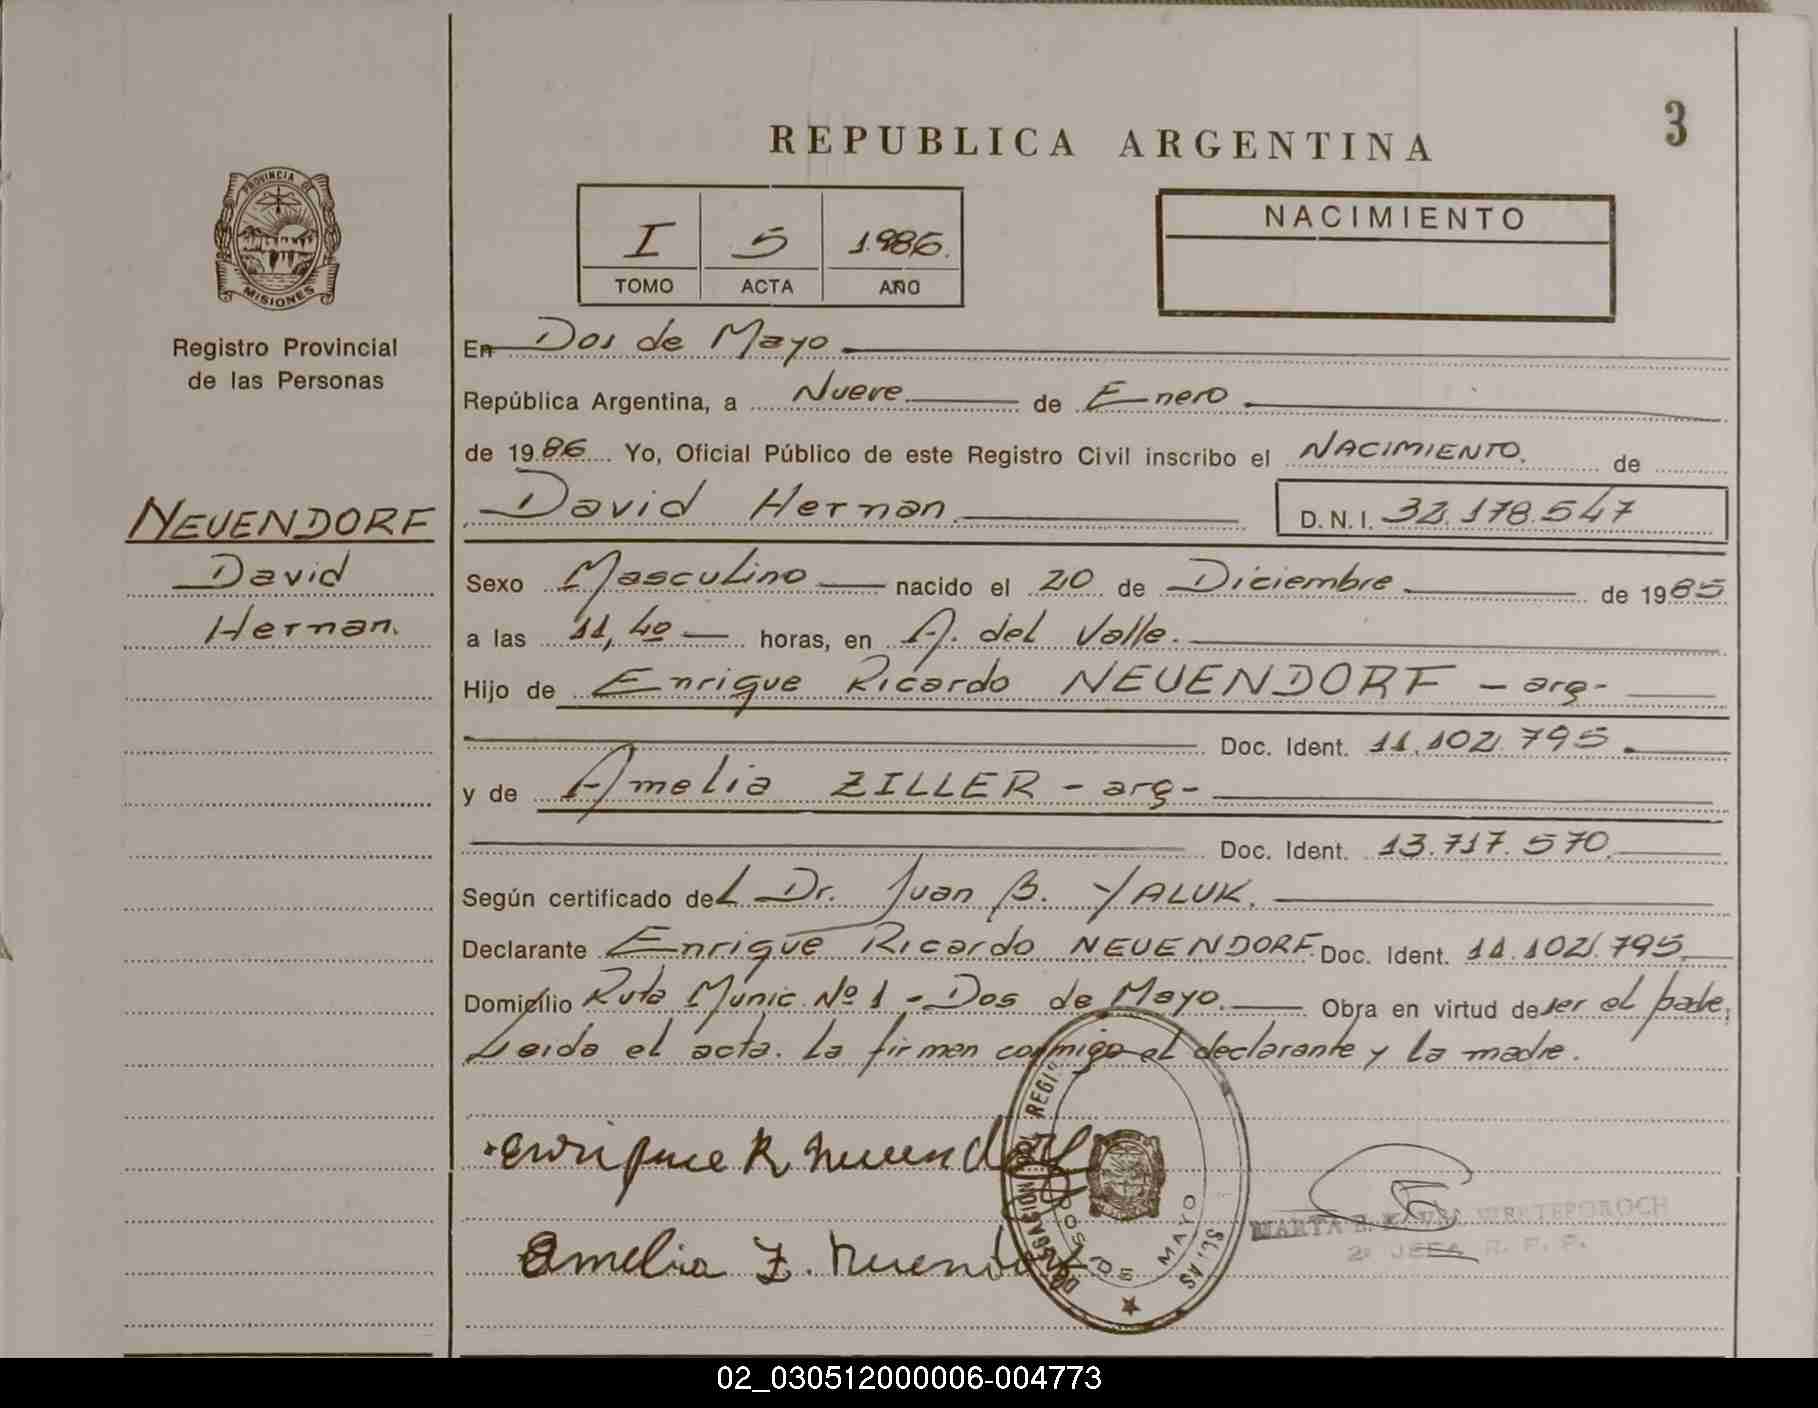 3
REPUBLICA ARGENTINA
PROVINCIA DE
MISIONES
I 5 1.986.
TOMO ACTA AÑO
NACIMIENTO
Registro Provincial
de las Personas
NEUENDORF
David
Hernan.
En Dos de Mayo
República Argentina, a Nueve de Enero
de 1986 Yo, Oficial Público de este Registro Civil inscribo el NACIMIENTO. de
David Hernan D. N. I. 32.178.547
Sexo Masculino nacido el 20 de Diciembre de 1985
a las 11,40 horas, en A. del Valle.
Hijo de Enrique Ricardo NEUENDORF - arg-
Doc. Ident. 11.102.795
y de Amelia ZILLER - arg-
Doc. Ident. 13.717.570.
Según certificado del Dr. Juan B. YALUK.
Declarante Enrique Ricardo NEUENDORF. Doc. Ident. 11.102.795.
Domicilio Ruta Munic. Nº 1 - Dos de Mayo. Obra en virtud de ser el padre,
Leida el acta. La firman conmigo el declarante y la madre.
Enrique R. Neuendorf
Amelia Z. Neuendorf
DOS DE MAYO
MARTA
2º JEFA R. P. P.
02_030512000006-004773